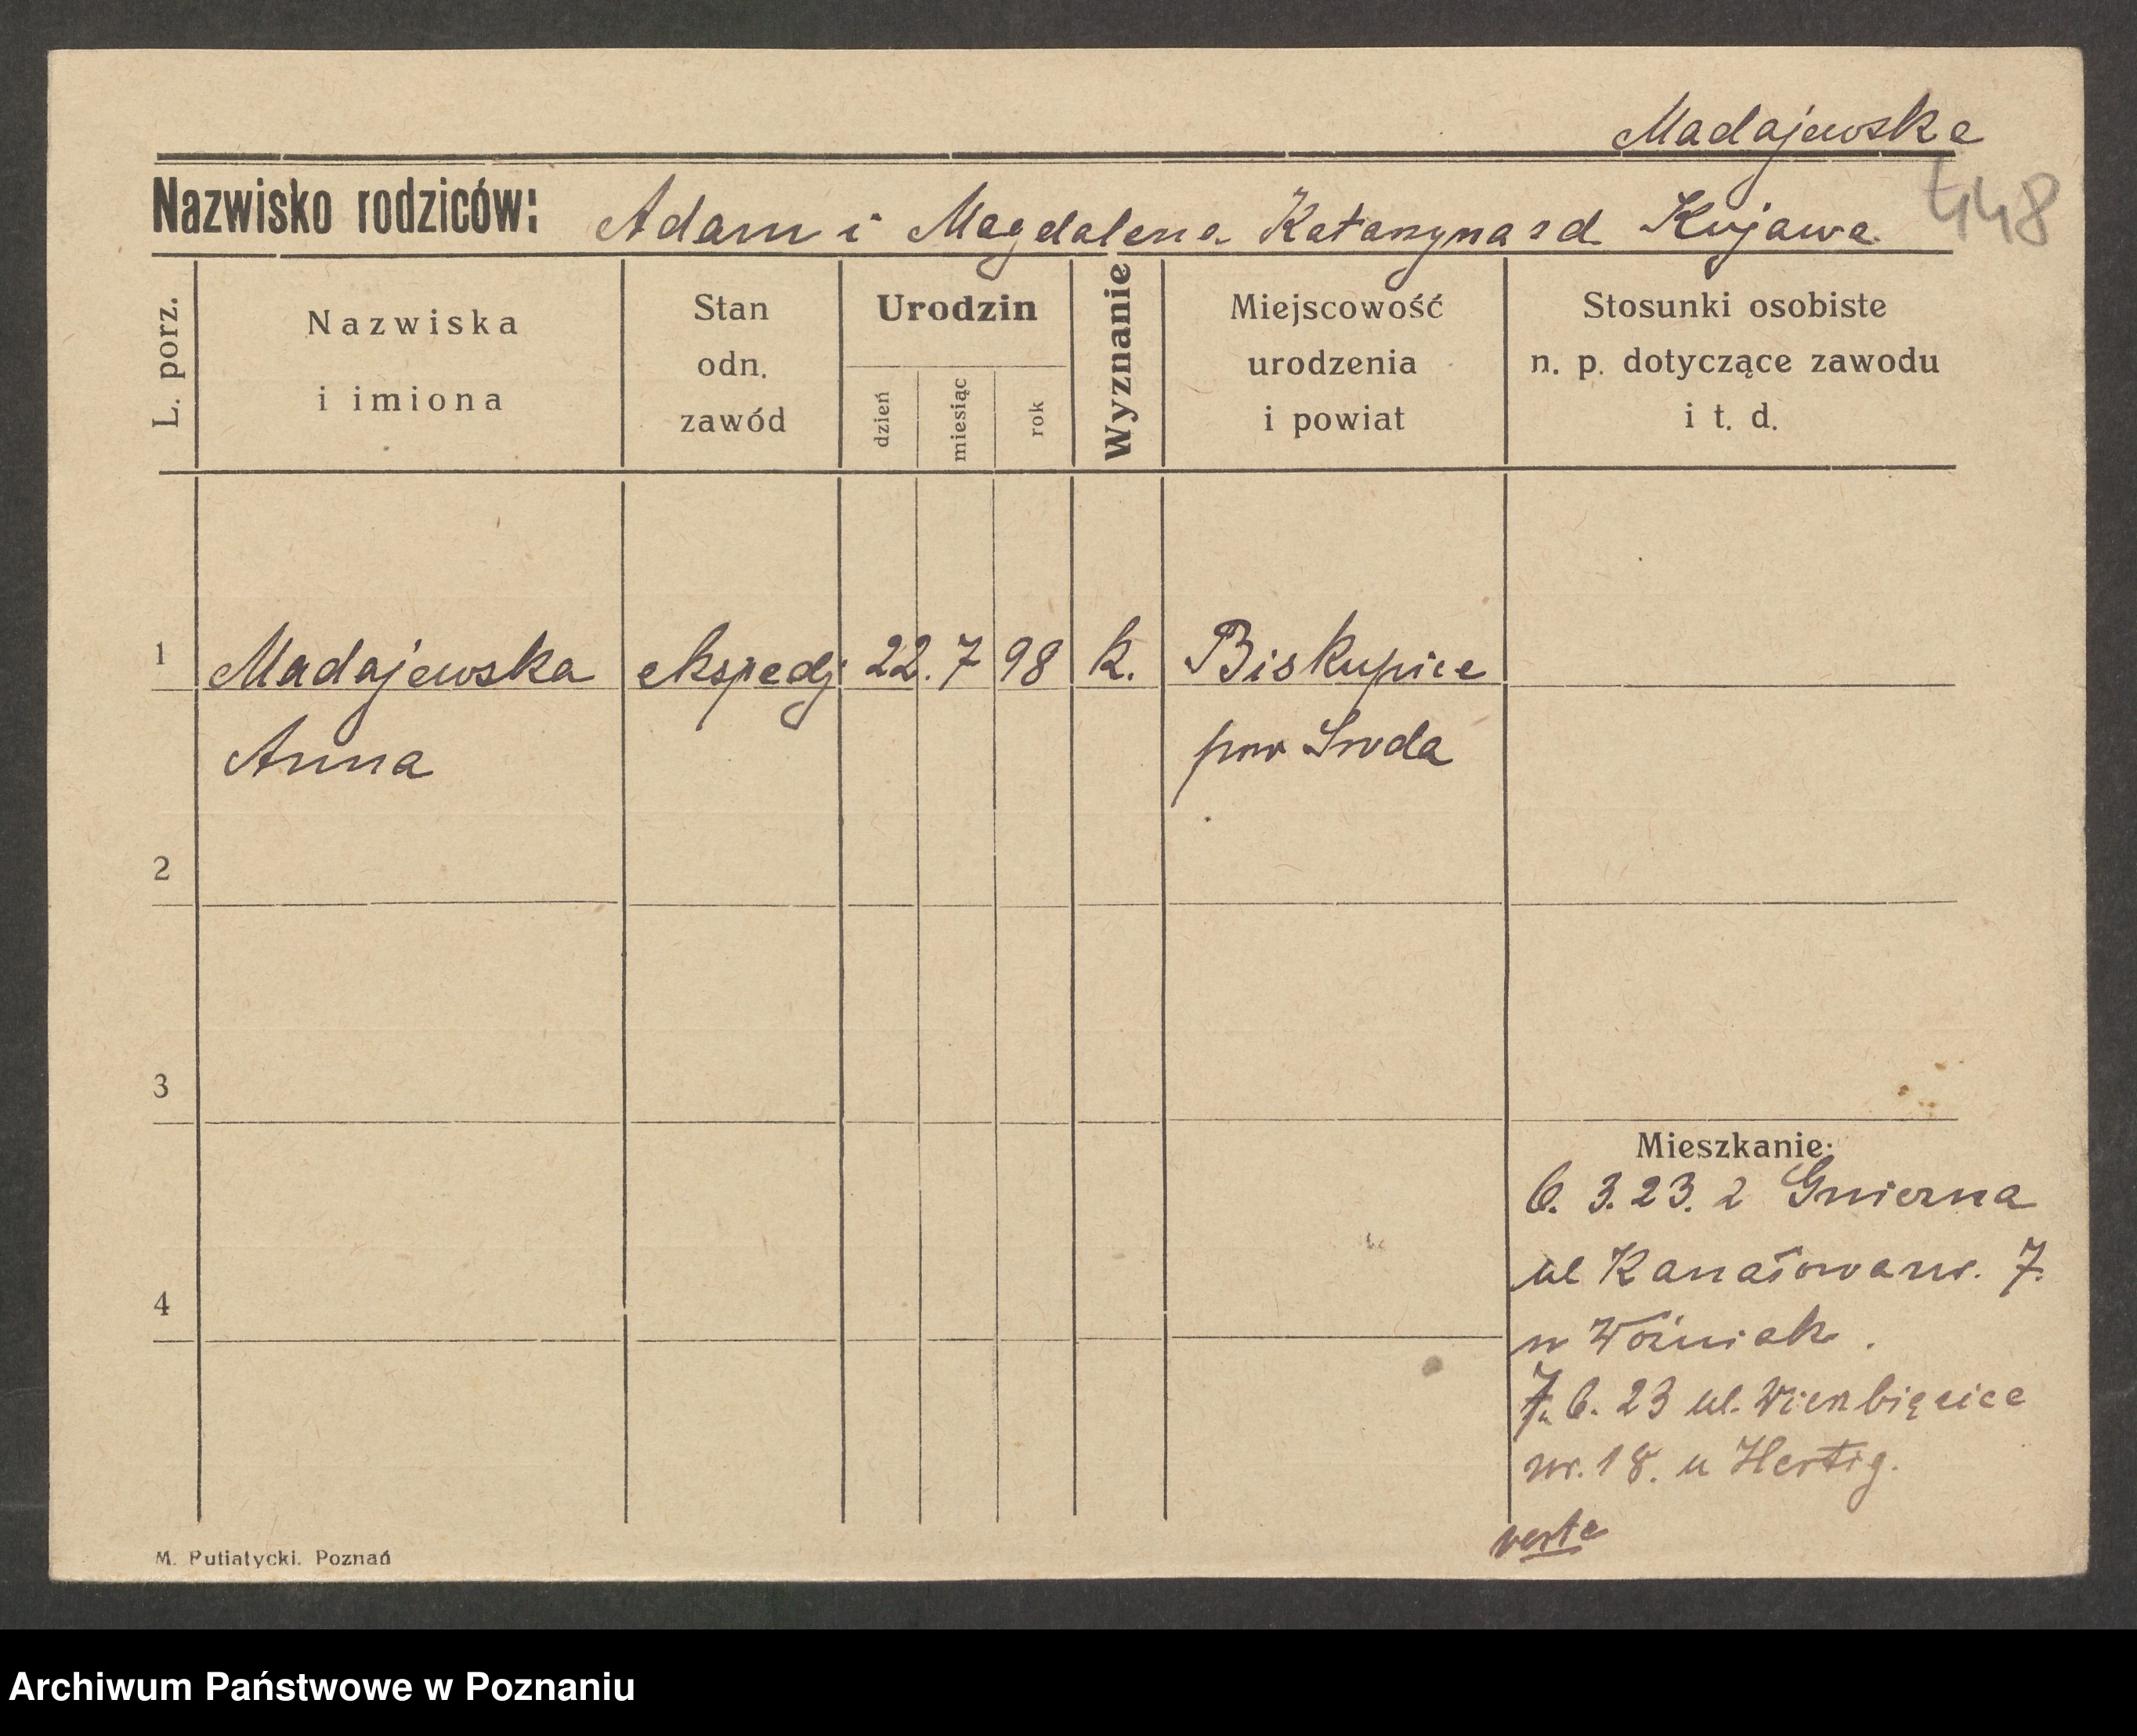 Madajewska
448
Nazwisko rodziców: Adam i Magdalena Katarzyna zd Kujawa
L. porz.
Nazwiska
i imiona
Stan
odn.
zawód
Urodzin
dzień
miesiąc
rok
Wyznanie
Miejscowość
urodzenia
i powiat
Stosunki osobiste
n. p. dotyczące zawodu
i t. d.
1 Madajewska ekspedj 22. 7 98 k. Biskupice
Anna pow Sroda
2
3
4
Mieszkanie:
6. 3. 23. z Gniezna
ul Kanałowa nr. 7.
u Woźniak.
7. 6. 23 ul. Wierzbięcice
nr. 18. u Hertig.
verte
M. Putiatycki. Poznań
Archiwum Państwowe w Poznaniu